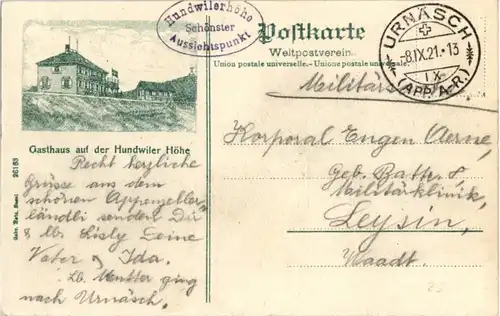 Hundwilerhöhe
Schönster
Aussichtspunkt
Postkarte
Weltpostverein.
Union postale universelle. - Unione postale universale.
URNÄSCH
-8.IX.21.-13
IX
(APP. A.-R.)
Militär
Gasthaus auf der Hundwiler Höhe
Recht herzliche
Grüsse aus dem
schönen Appenzeller
ländli senden Dir
& lb. Lisly Deine
Vater & Ida.
Lb. Mutter ging
nach Urnäsch.
Korporal Eugen Aerne,
Geb. Batt. 8
Militärklinik,
Leysin,
Waadt.
26183